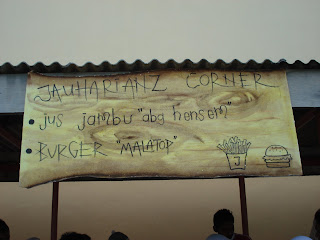 JAUHARIANZ CORNER
jus jambu "abg hensem"
BURGER "MALATOP"
J